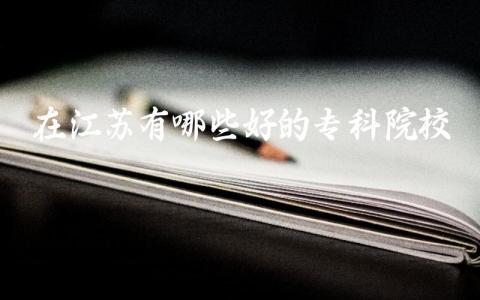 在江苏有哪些好的专科院校